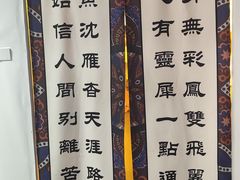 身無彩鳳雙飛翼
有靈犀一點通
魚沈雁香天涯路
始信人間別離苦